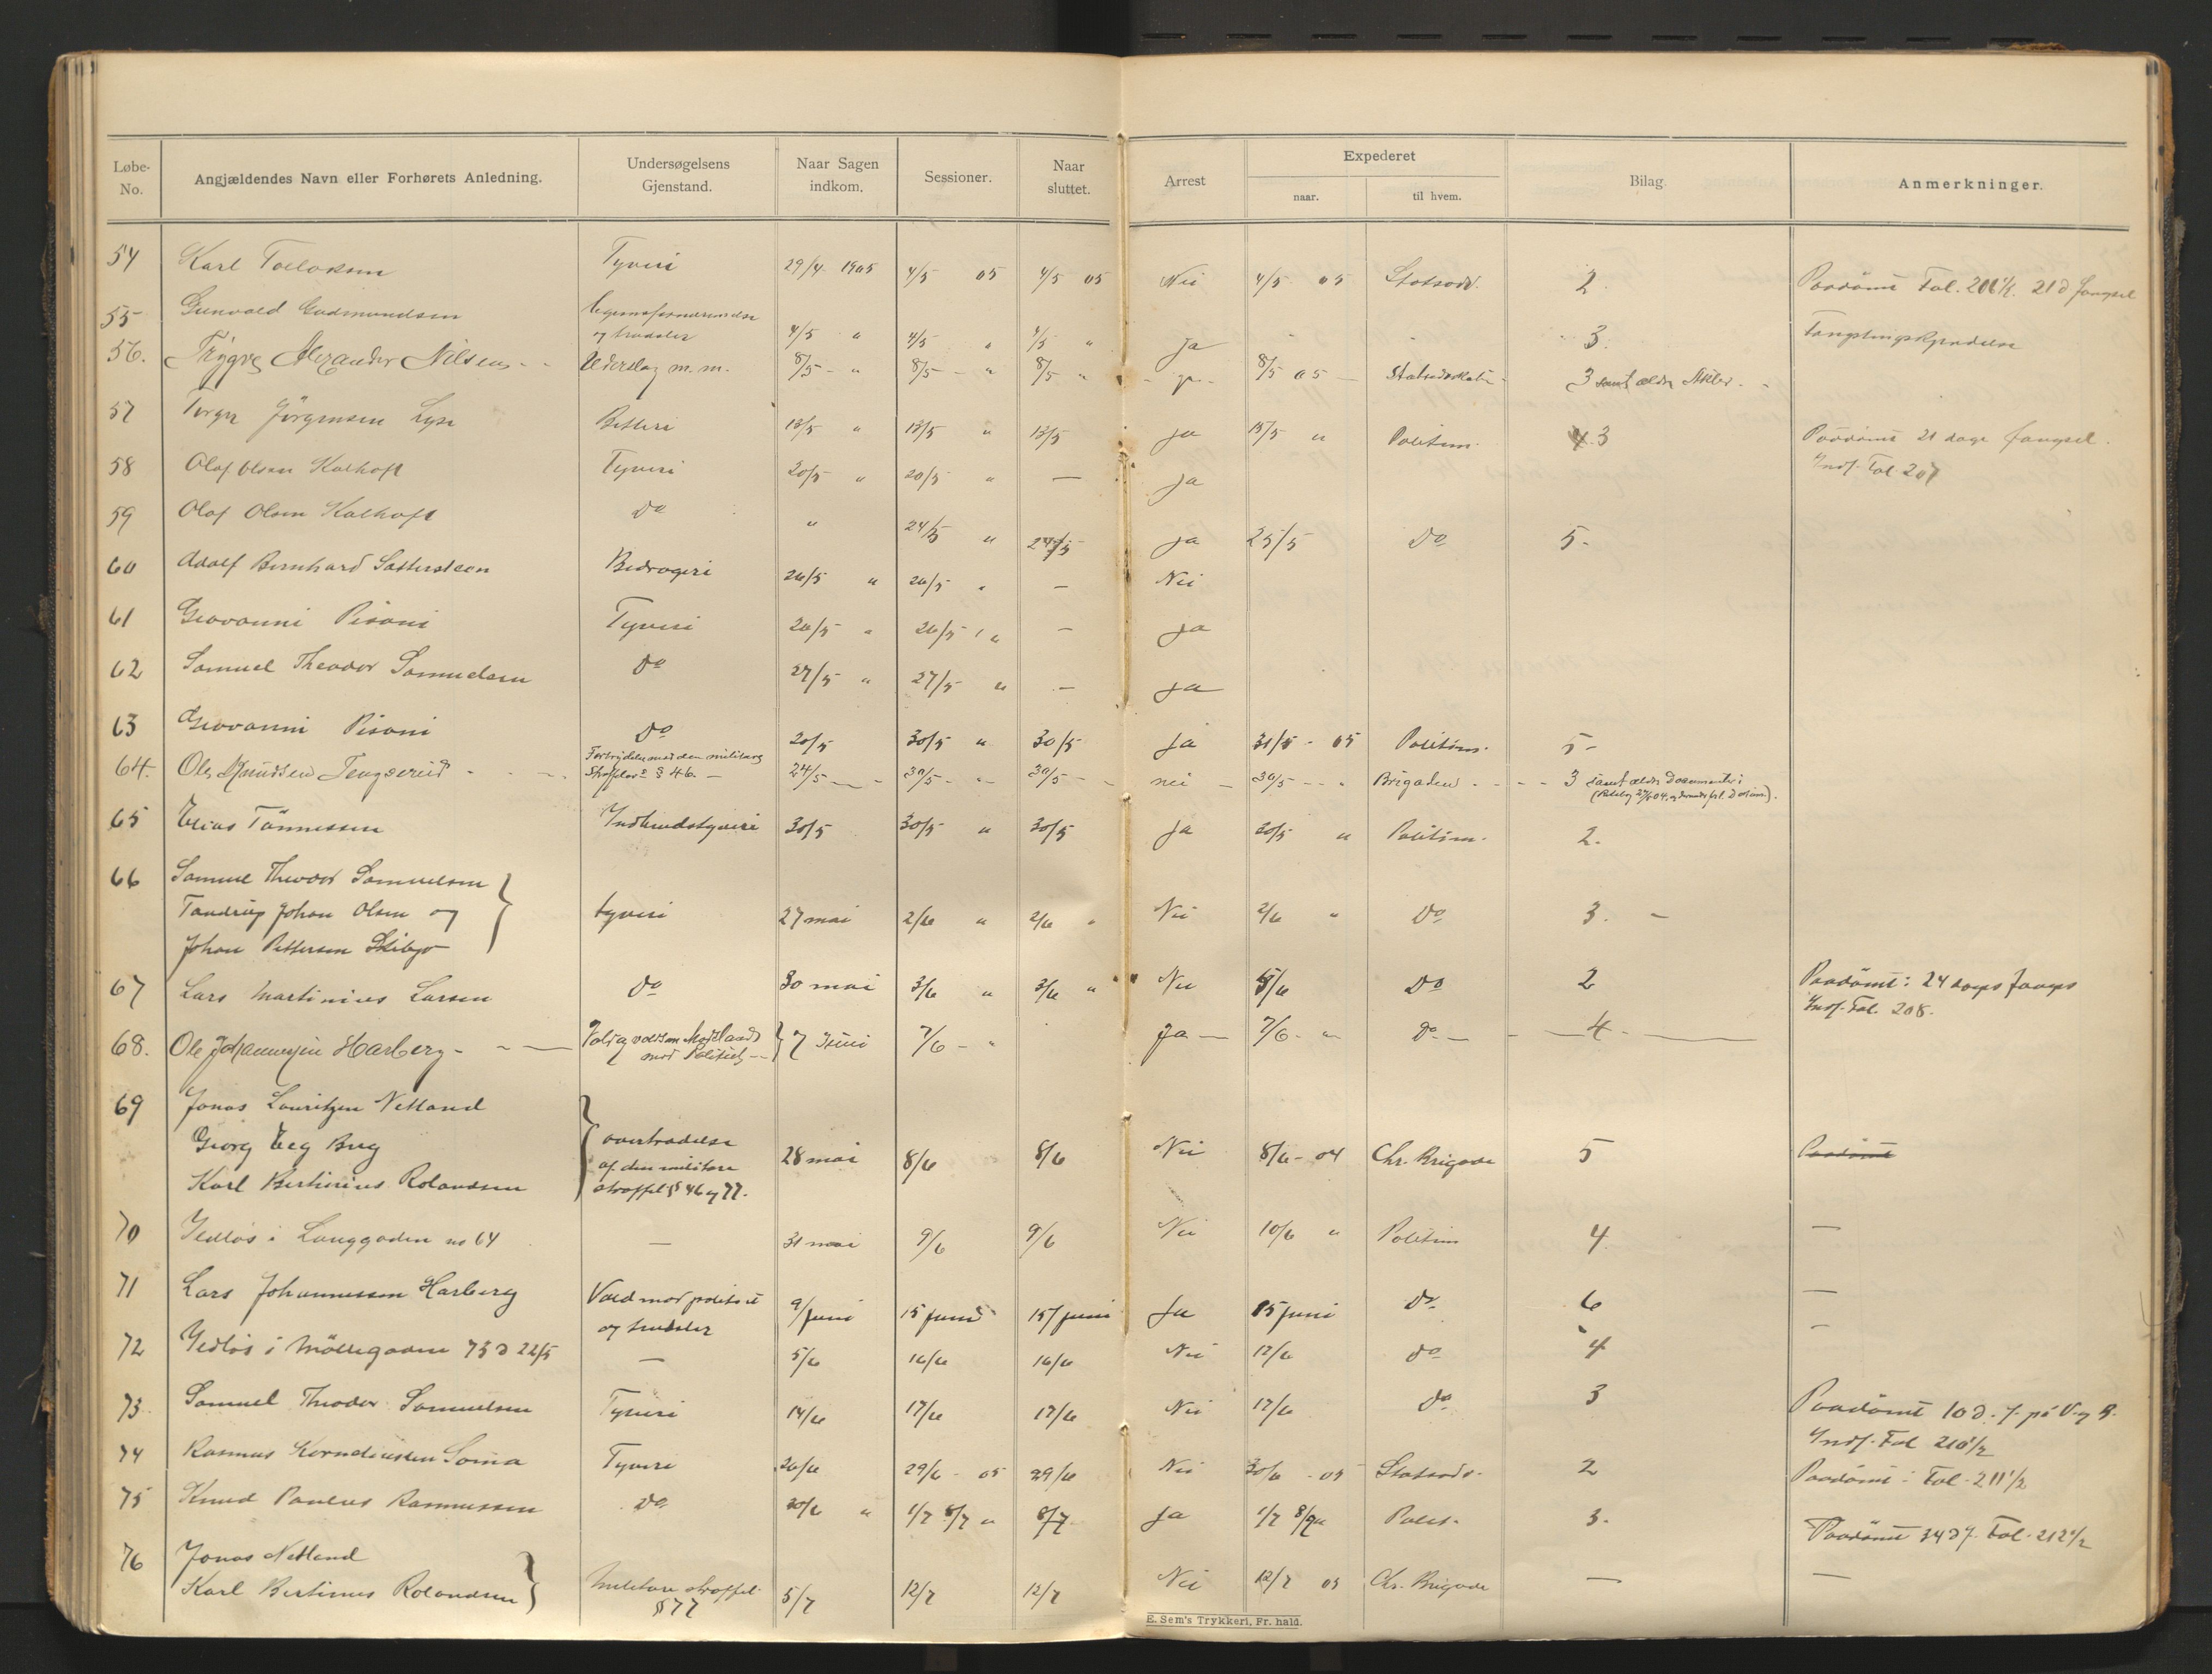 Løbe-No.	Angjældendes Navn eller Forhørets Anledning.	Undersøgelsens Gjenstand.	Naar Sagen indkom.	Sessioner.	Naar sluttet.	Arrest	Expederet naar.	Expederet til hvem.	Bilag.	Anmerkninger.
54	Karl	Tyveri	29/4 1905	4/5 05	4/5 05	Nei	4/5 05	Statsadv.	2.	Paadömt Fol. 206½. 21 d fængsel
55	Gunvald Gudmundsen	Legemsfornærmelse
og trudsler	4/5 "	4/5 "	4/5 "	ja	-	-	3.	Fængslingskjendelse
56.	Trygve Alexander Nilsen	Underslag m. m.	8/5 - "	8/5 - "	8/5 "	- ja -	8/5 05 -	Statsadvokaten -	3 samt ældre Akter. -
57	Torger Jörgensen Lyse	Betleri	13/5 "	13/5 "	13/5	ja	15/5 "	Politim.	3	Paadömt 21 dage fængsel.
58	Olaf Olsen Kalhoft	Tyveri	20/5 "	20/5 "	—	ja				Indf. Fol 207
59	Olaf Olsen Kalhoft	Do	"	24/5 "	24/5	ja	25/5	Do	5-
60	Adolf Bernhard	Bedrageri	26/5 "	26/5 "	—	Nei
61	Giovanni Pisani	Tyveri	26/5 "	26/5 "	—	ja
62	Samuel Theodor Samuelsen	Do	27/5 "	27/5 "	—	ja
63	Giovanni Pisani	Do	20/5	30/5 "	30/5	ja	31/5 - 05	Politim.	5-
64.	Ole Knudsen	Forbrydelse mod den militære
Straffelov § 46. —	24/5 —	30/5 - "	30/5 -	nei —	30/5 - -	Brigaden - -	3 samt ældre Documenter:
65	Elias Tönnessen	Indbrudstyveri	30/5	30/5 "	30/5	ja	30/5 "	Politim.	2.
66	Samuel Theodor Samuelsen
Tandrup Johan Olsen og
Johan Pettersen	tyveri	27 mai	2/6 "	2/6 "	Nei	2/6 "	Do	3. -
67	Lars Martinius Larsen	Do	30 mai	3/6 "	3/6 "	Nei	5/6	Do	2	Paadömt: 24 dages fængs
Indf. Fol. 208.
68.	Ole Johannesen Harberg - - —	Vold og voldsom Modstand
mod Politiet -	7 Juni	7/6 - "		Ja —	7/6 - "	Do —	4 -
69	Jonas Lauritzen Netland
Georg Eeg Bug
Karl Bertinius Rolandsen	overtrædelse
af den militære
straffel §§ 46 og 77.	28 mai	8/6	8/6	Nei	8/6 - 04	Chr. Brigade	5	Paadömt
70	Ildlös i Langgaden no 64	—	31 mai	9/6	9/6	Nei	10/6 "	Politim	4.	—
71	Lars Johannessen Harberg	Vold mod politiet
og trudsler	9/juni	15 juni	15/juni	Ja	15 juni	Do	6	—
72	Ildlös i Möllegaden 73 d 22/5	—	5/6	16/6	16/6	Nei	17/6	do	4	—
73.	Samuel Theodor Samuelsen	Tyveri	14/6	17/6	17/6	Nei	17/6	do	3	Paadömt 10 d. f. på V. og B.
Indf. Fol 210½
74	Rasmus Korneliussen Soma	Tyveri	26/6	29/6 - 05	29/6	Nei	30/6 - 05	Statsadv.	2	Paadömt: Fol. 211½
75	Knud Paulus Rasmussen	Do	30/6 "	1/7 8/7 "	8/7	Ja	1/7	Polit.	3.	Paadömt 34 d f. Fol. 212½
76	Jonas Netland
Karl Bertinus Rolandsen	Militære straffel.
§ 77	5/7	12/7	12/7	Nei	12/7 05	Chr. Brigade	—	—
E. Sem's Trykkeri, Fr. hald.